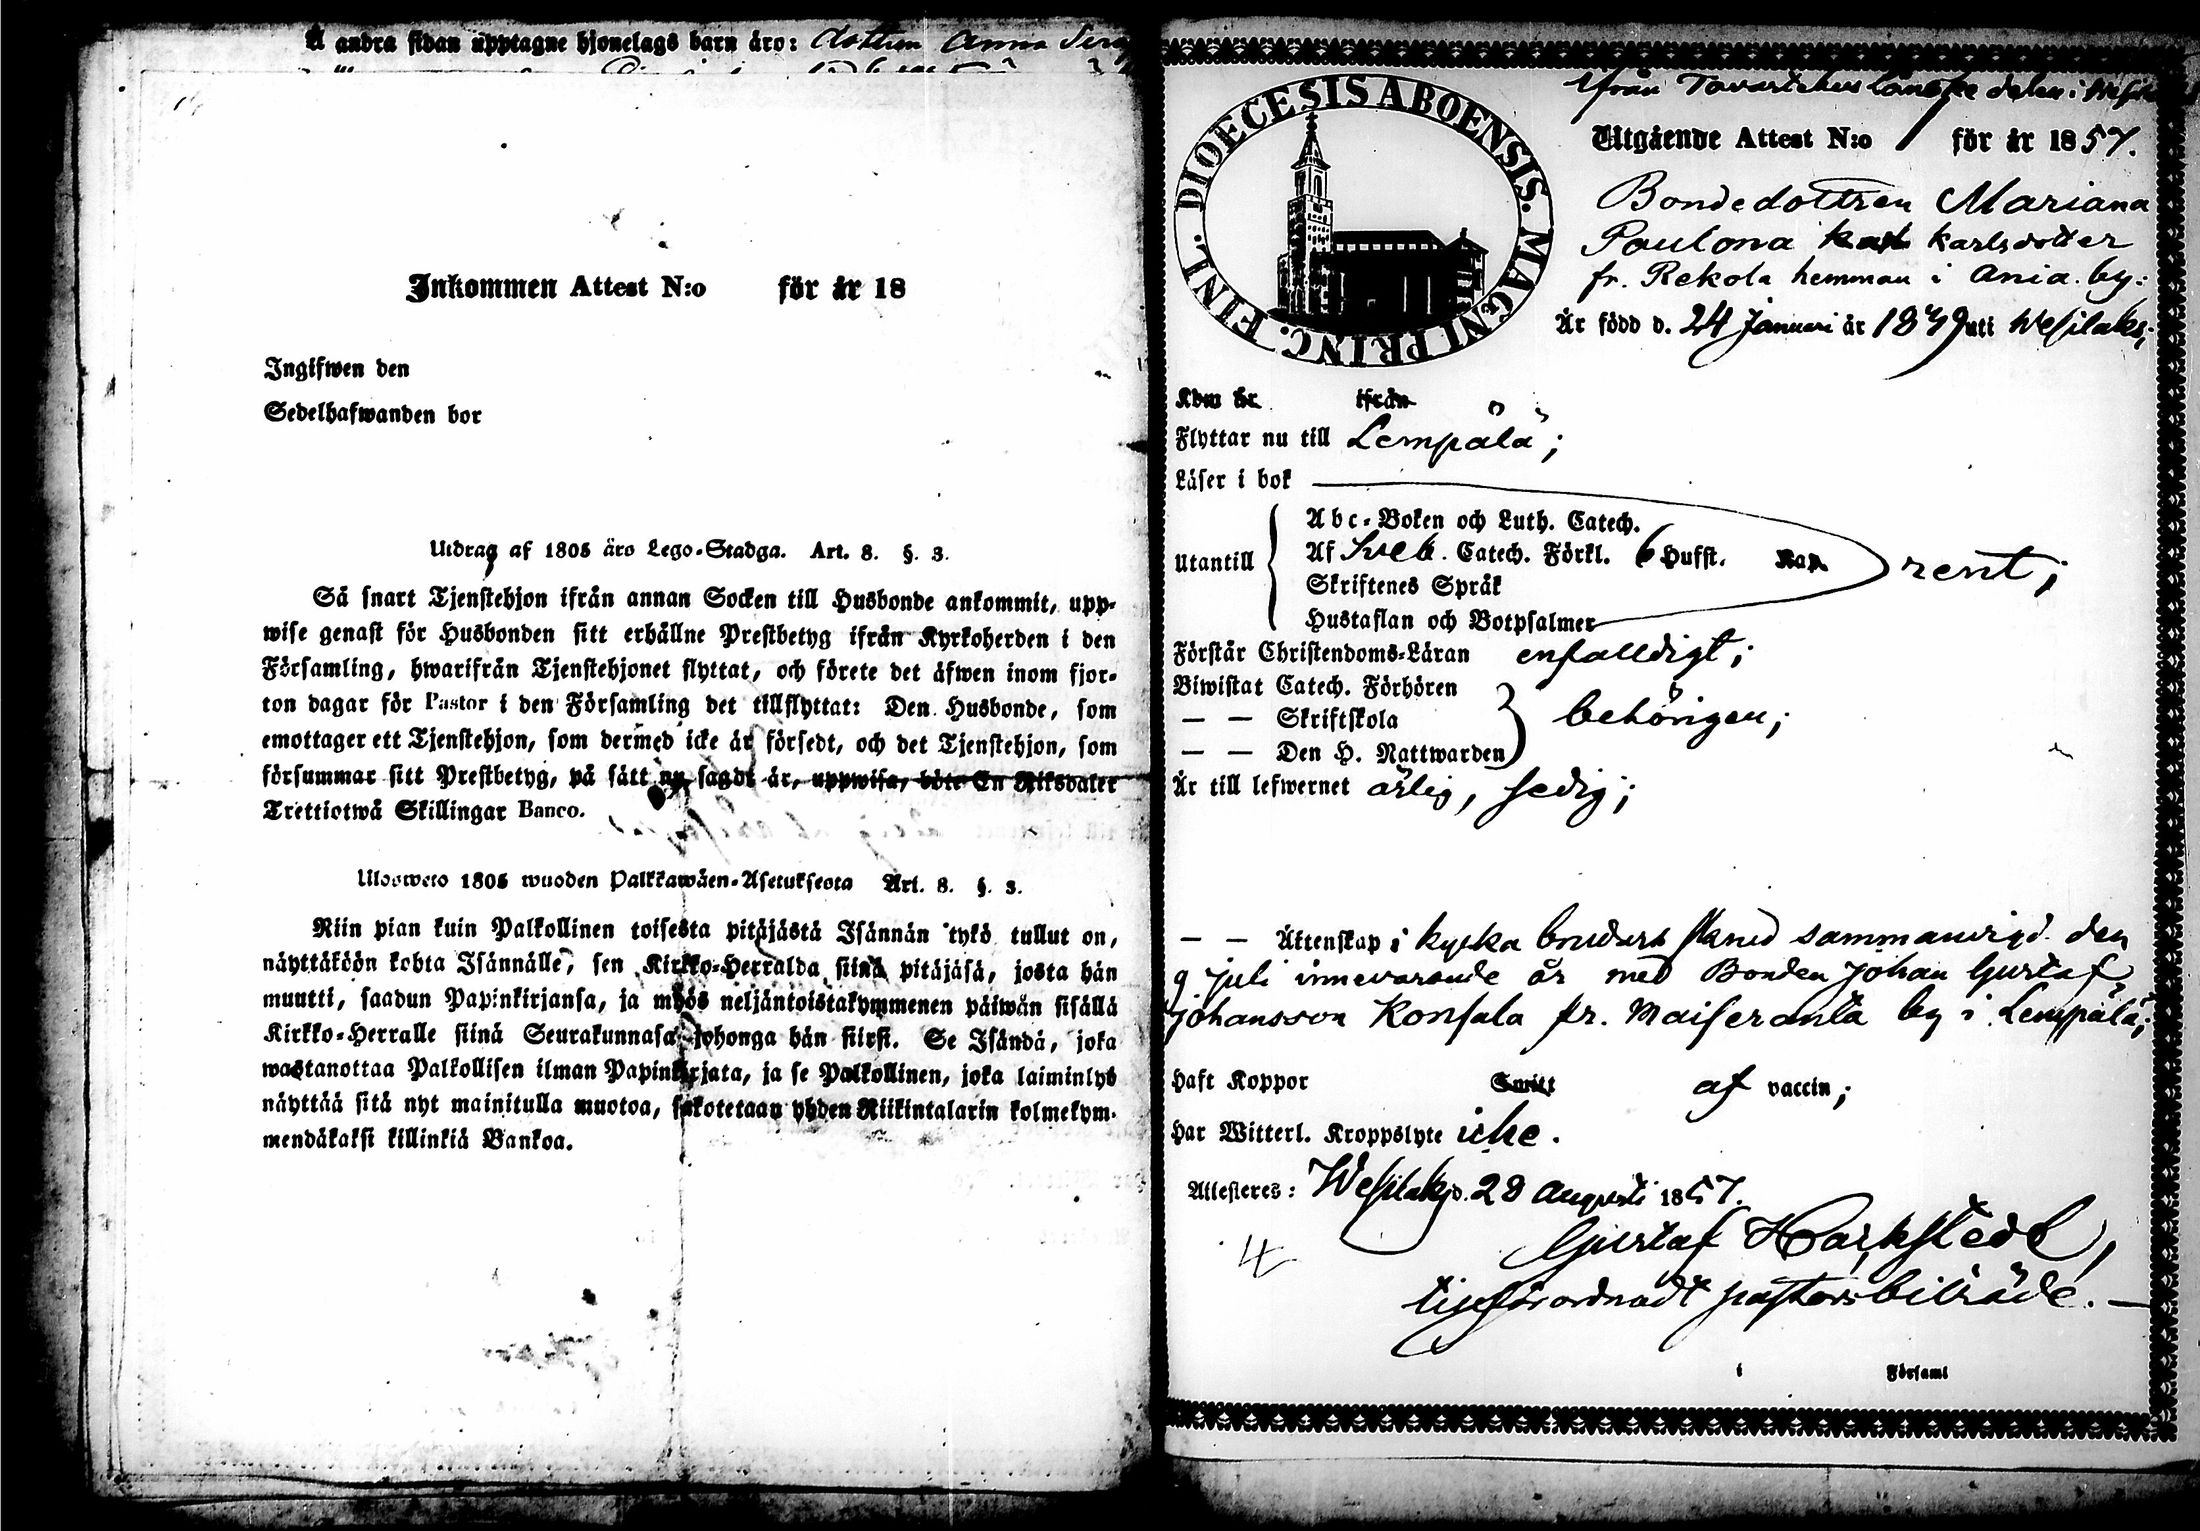 Å andra sidan upptagne hjonelags barn äro: dottren Anna
Inkommen Attest N:o för år 18
Ingifwen den
Sedelhafwanden bor
Utdrag af 1805 års Lego-Stadga. Art. 8. §. 3.
Så snart Tjenstehjon ifrån annan Socken till Husbonde ankommit, upp-
wise genast för Husbonden sitt erhållne Prestbetyg ifrån Kyrkoherden i den
Församling, hwarifrån Tjenstehjonet flyttat, och förete det äfwen inom fjor-
ton dagar för Pastor i den Församling det tillflyttat: Den Husbonde, som
emottager ett Tjenstehjon, som dermed icke är försedt, och det Tjenstehjon, som
försummar sitt Prestbetyg, på sätt nu sagdt är, uppwisa, böte En Riksdaler
Trettiotwå Skillingar Banco.
Ulosweto 1805 wuoden Palkkawäen-Asetuksesta Art. 8. §. 3.
Niin pian kuin Palkollinen toisesta pitäjästä Isännän tykö tullut on,
näyttäköön kohta Isännälle, sen Kirkko-Herralda siinä pitäjäsä, josta hän
muutti, saadun Papinkirjansa, ja myös neljäntoistakymmenen päiwän sisällä
Kirkko-Herralle siinä Seurakunnasa johonga hän siirsi. Se Isändä, joka
wastanottaa Palkollisen ilman Papinkirjata, ja se Palkollinen, joka laiminlyö
näyttää sitä nyt mainitulla muotoa, sakotetaan yhden Riikintalarin kolmekym-
mendäkaksi killinkiä Bankoa.
DIOECESIS ABOENSIS. MAGNI PRINC. FINL.
ifrån Tavastehus länske delen i
Utgående Attest N:o för år 1857.
Bondedottren Mariana
Paulona Karlsdotter
fr. Rekola hemman i Ania by:
Är född d. 24 Januari år 1839 uti Wesilaks;
Kom år ifrån
Flyttar nu till Lempälä;
Läser i bok
Utantill
Abc-Boken och Luth. Catech.
Af Sveb. Catech. Förkl. 6 Hufst. Kap.
Skriftenes Språk
Hustaflan och Botpsalmer
rent;
Förstår Christendoms-Läran enfalldigt;
Biwistat Catech. Förhören
— — Skriftskola
— — Den H. Nattwarden
behörigen;
Är till lefwernet ärlig, sedig;
— — Äktenskap i kyrka brudars stånd sammanvigd den
9 juli innevarande år med Bonden Johan Gustaf
Johansson Konsala fr. Maiseranta by i Lempälä;
Haft Koppor Smitt af vaccin;
Har Witterl. Kroppslyte icke.
Attesteres: Wesilaks d. 28 augusti 1857.
Gustaf
tillförordnadt pastorsbiträde. —
i Församl